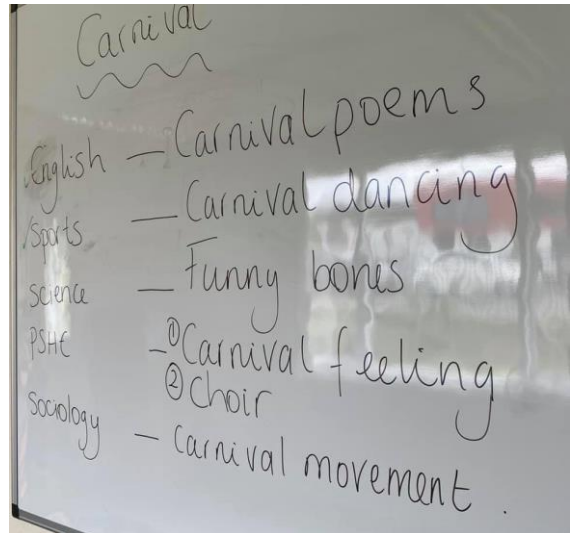 Carnival
English — Carnival poems
Sports — Carnival dancing
Science — Funny bones
PSHE — ① Carnival feeling
② Choir
Sociology — Carnival movement.